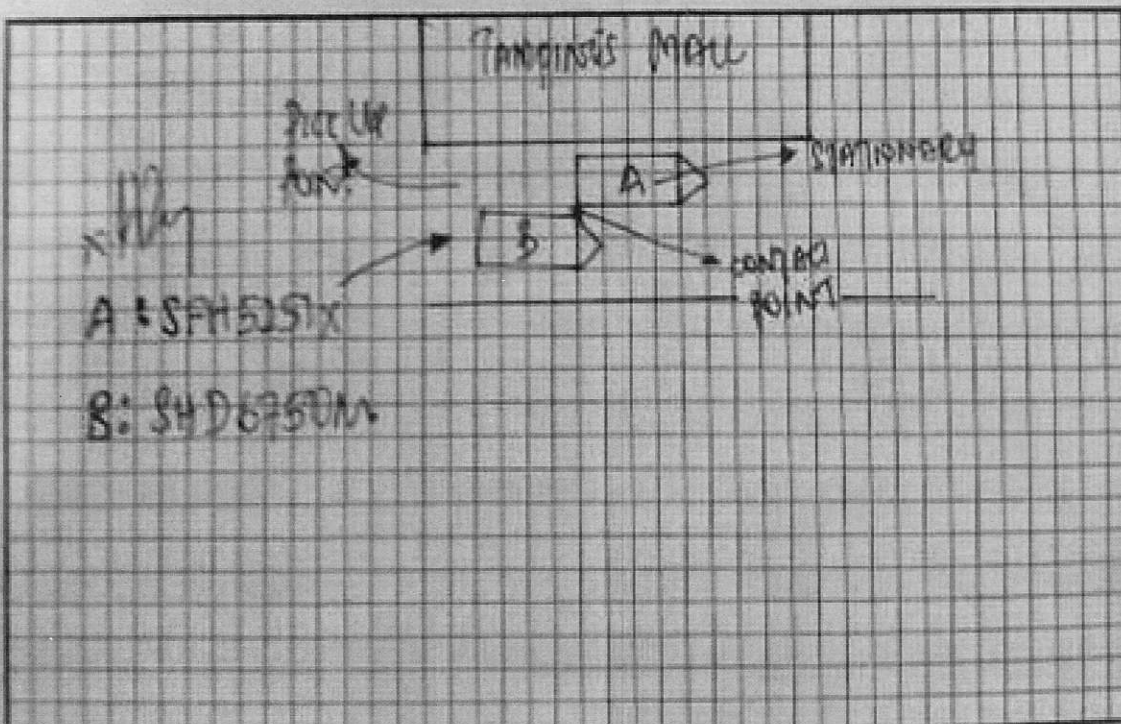 MALL
PICK UP
POINT
STATIONERY
A
B
CONTACT
POINT
A : SFH5257X
B: SHD6750M